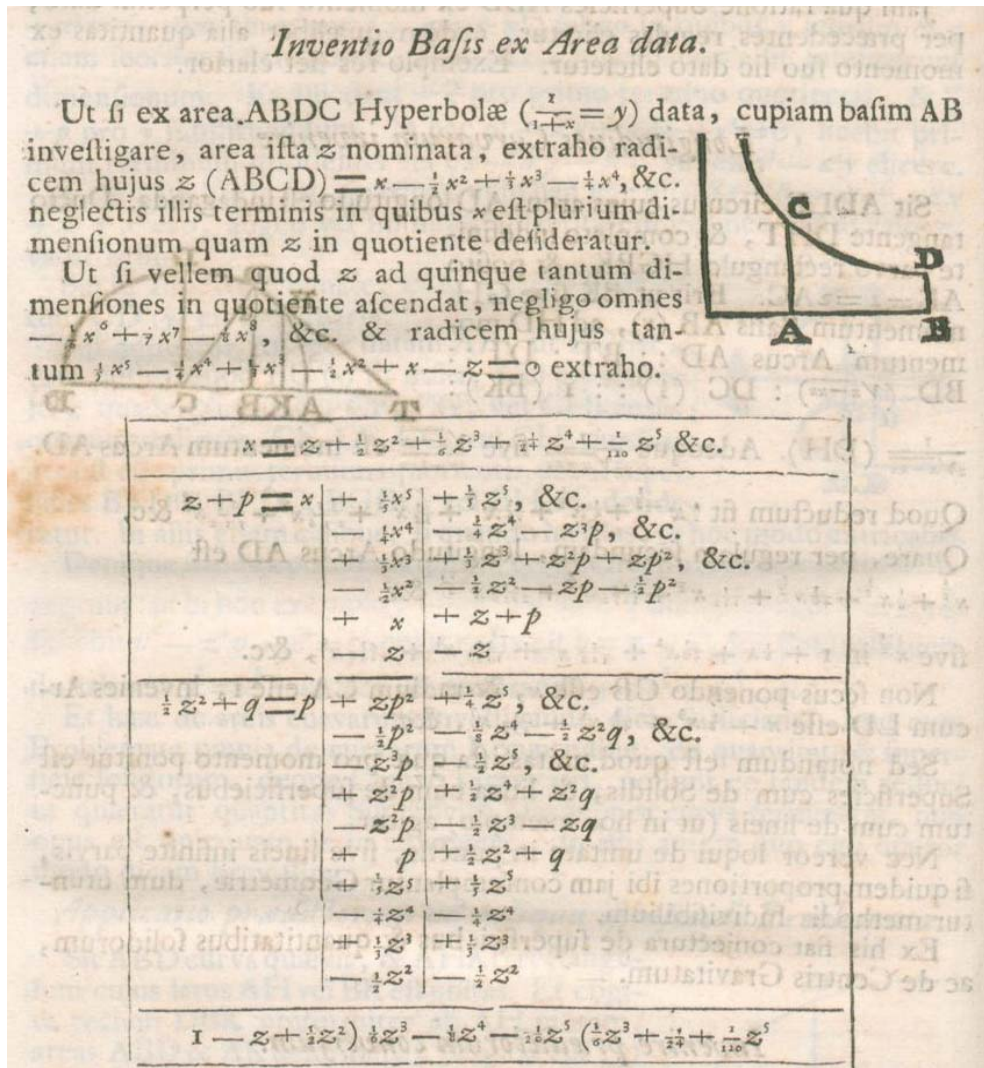 Inventio Baſis ex Area data.
Ut ſi ex area ABDC Hyperbolæ (1/1+x = y) data, cupiam baſim AB
inveſtigare, area iſta z nominata, extraho radi-
cem hujus z (ABCD) = x — ½x² + ⅓x³ — ¼x⁴, &c.
neglectis illis terminis in quibus x eſt plurium di-
menſionum quam z in quotiente deſideratur.
Ut ſi vellem quod z ad quinque tantum di-
menſiones in quotiente aſcendat, negligo omnes
— ⅙x⁶ + ⅐x⁷ — ⅛x⁸, &c. & radicem hujus tan-
tum ⅕x⁵ — ¼x⁴ + ⅓x³ — ½x² + x — z = 0 extraho.
C
D
A
B
x = z + ½z² + ⅙z³ + 1/24 z⁴ + 1/120 z⁵ &c.
z + p = x | + ⅕x⁵ | + ⅕z⁵, &c.
— ¼x⁴ | — ¼z⁴ — z³p, &c.
+ ⅓x³ | + ⅓z³ + z²p + zp², &c.
— ½x² | — ½z² — zp — ½p²
+ x | + z + p
— z | — z
½z² + q = p | + zp² | + ¼z⁵, &c.
— ½p² | — ⅛z⁴ — ½z²q, &c.
— z³p | — ½z⁵, &c.
+ z²p | + ½z⁴ + z²q
— z²p | — ½z³ — zq
+ p | + ½z² + q
+ ⅕z⁵ | + ⅕z⁵
— ¼z⁴ | — ¼z⁴
+ ⅓z³ | + ⅓z³
— ½z² | — ½z²
1 — z + ½z²) ⅙z³ — ⅛z⁴ + 1/20 z⁵ (⅙z³ + 1/24 + 1/120 z⁵